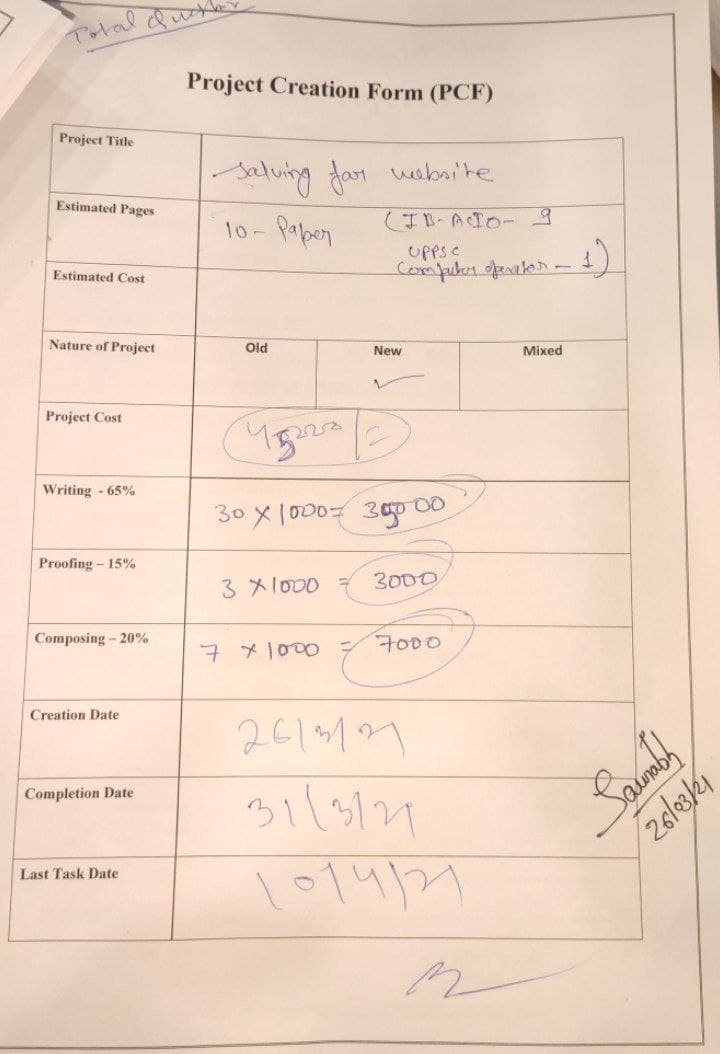 Total
Project Creation Form (PCF)
Project Title
Salving for website
Estimated Pages
10 - Paper (IB-ACIO- 9
UPPSC
Computer operator - 1)
Estimated Cost
Nature of Project
Old New Mixed
✓
Project Cost
45000/=
Writing - 65%
30 × 1000 = 30000
Proofing – 15%
3 × 1000 = 3000
Composing – 20%
7 × 1000 = 7000
Creation Date
26/3/21
Completion Date
31/3/21
Saurabh
26/03/21
Last Task Date
10/4/21